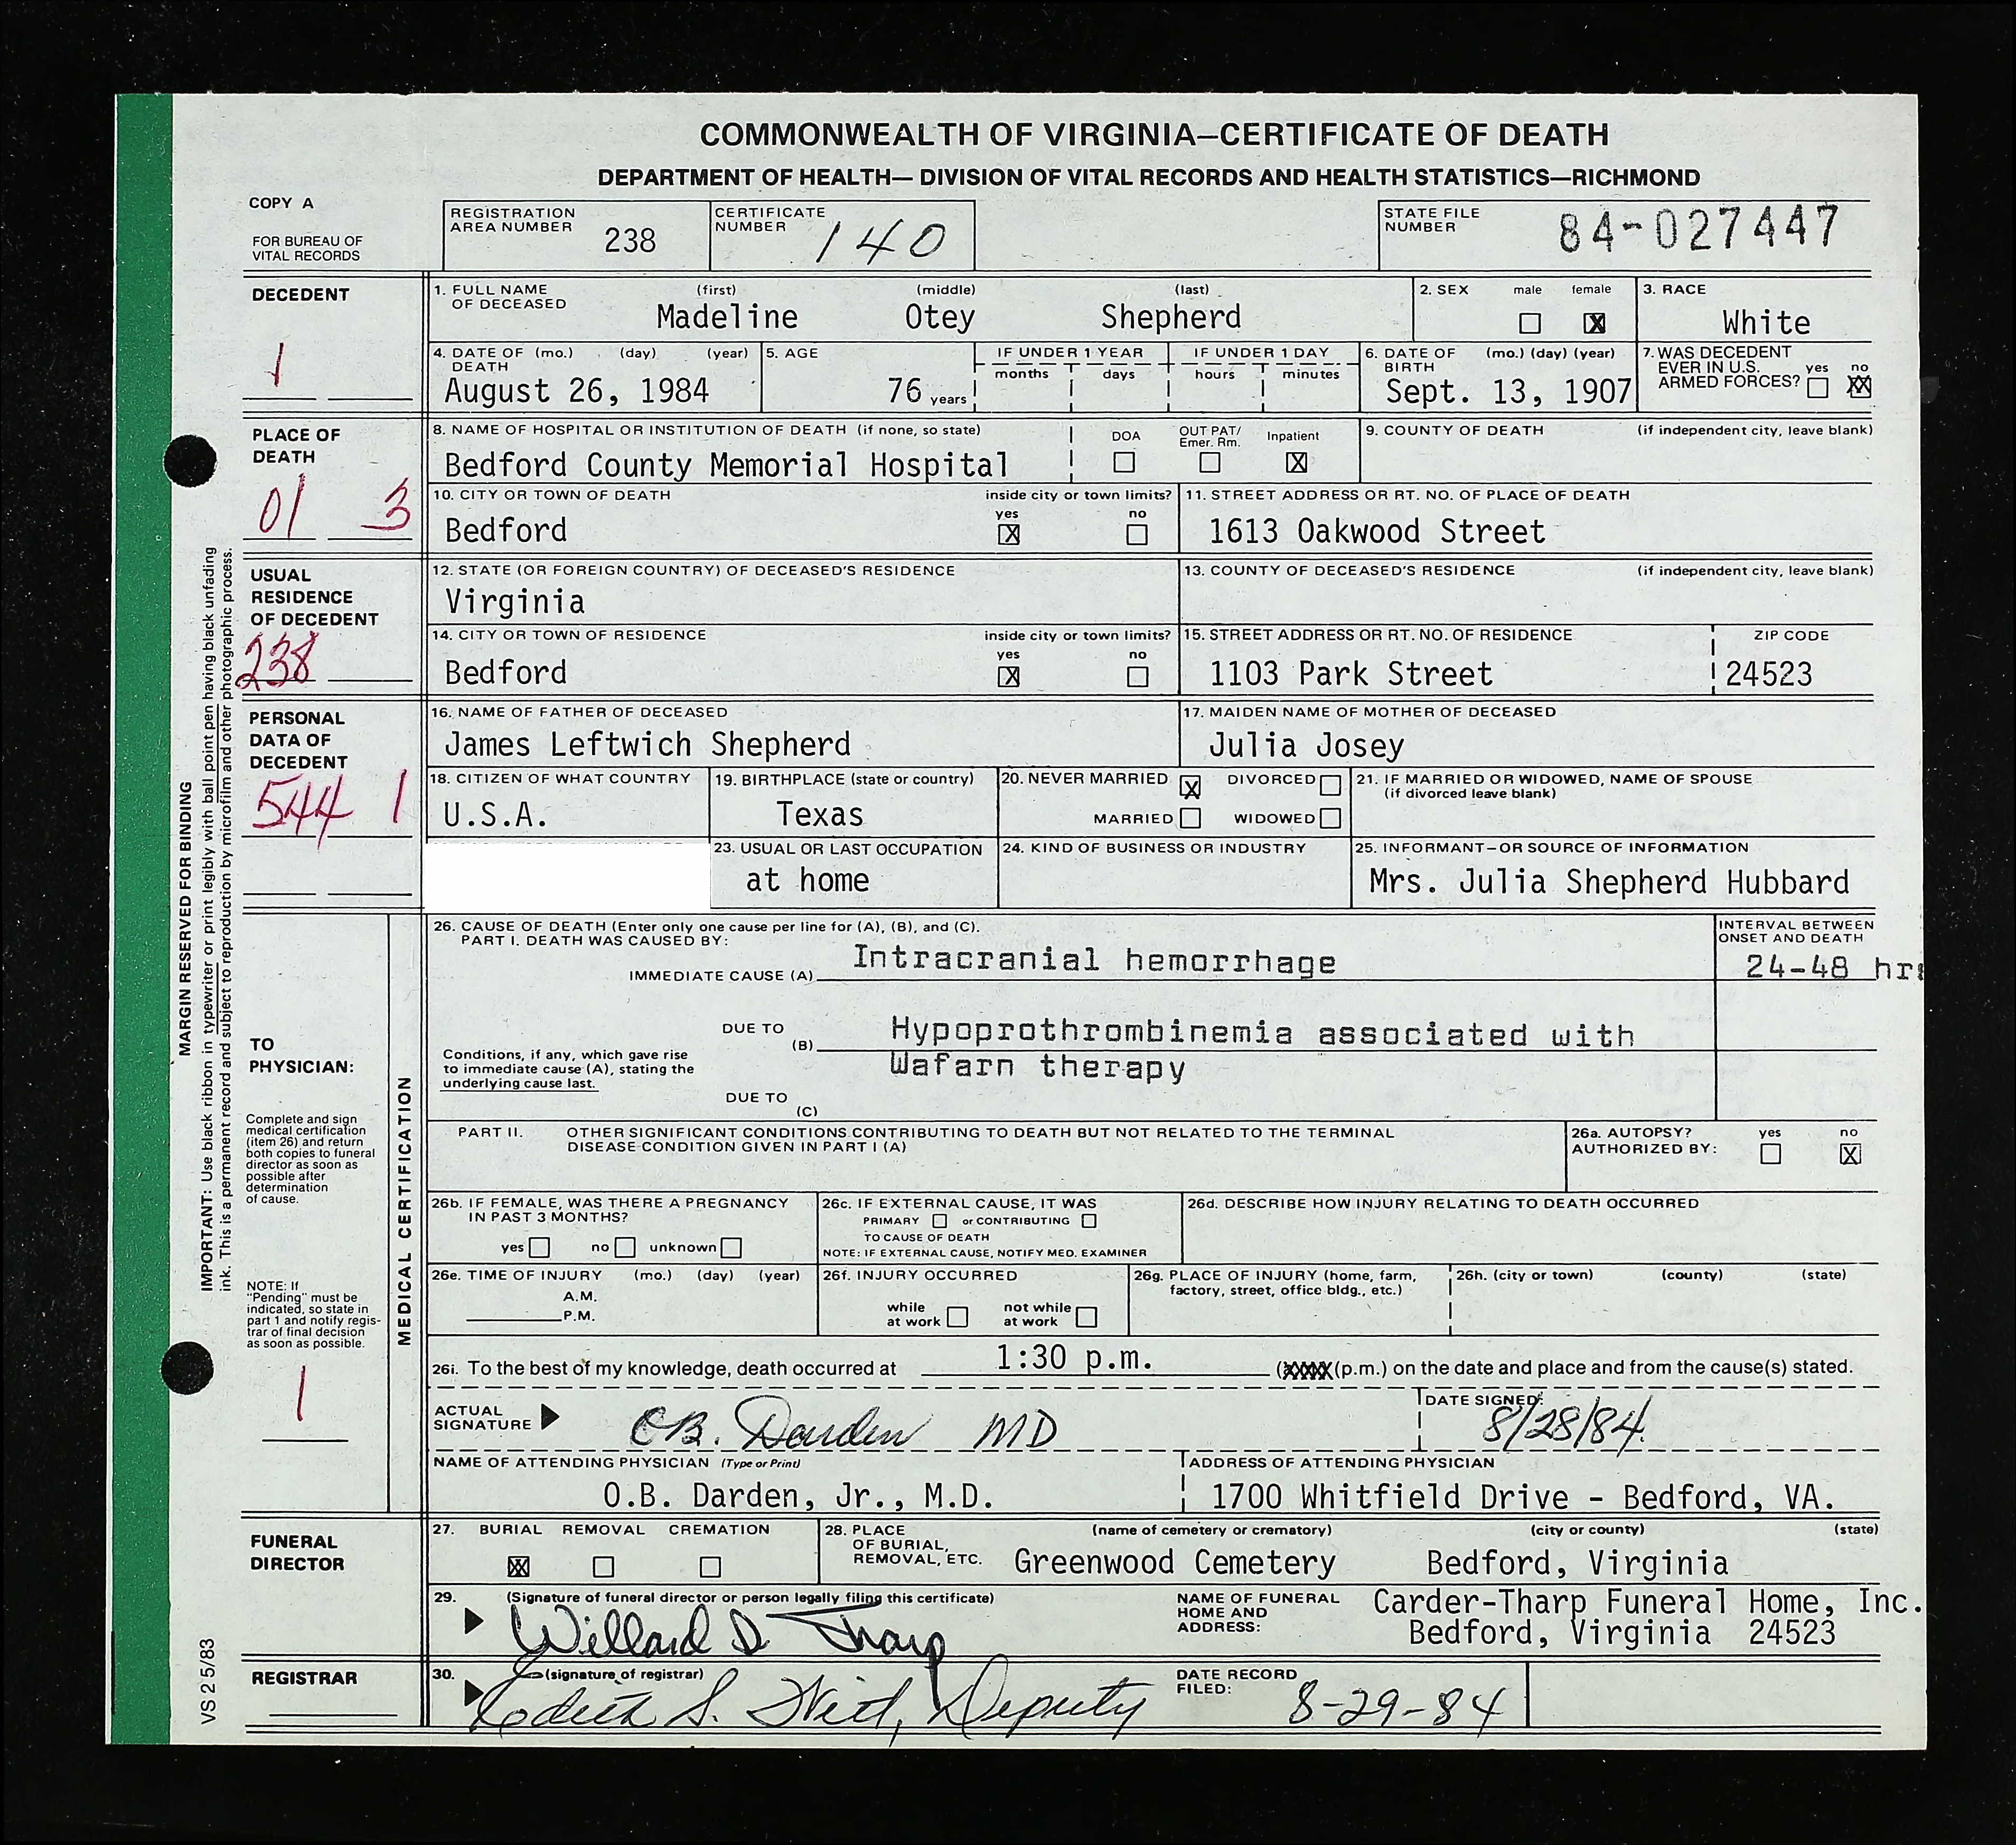 COMMONWEALTH OF VIRGINIA—CERTIFICATE OF DEATH
DEPARTMENT OF HEALTH— DIVISION OF VITAL RECORDS AND HEALTH STATISTICS—RICHMOND
COPY A
FOR BUREAU OF
VITAL RECORDS
REGISTRATION
AREA NUMBER 238
CERTIFICATE
NUMBER 140
STATE FILE
NUMBER 84-027447
DECEDENT
1
1. FULL NAME (first) (middle) (last)
OF DECEASED
Madeline Otey Shepherd
2. SEX male female
X
3. RACE
White
4. DATE OF (mo.) (day) (year)
DEATH
August 26, 1984
5. AGE
76 years
IF UNDER 1 YEAR
months days
IF UNDER 1 DAY
hours minutes
6. DATE OF (mo.) (day) (year)
BIRTH
Sept. 13, 1907
7. WAS DECEDENT
EVER IN U.S. yes no
ARMED FORCES? XX
PLACE OF
DEATH
01 3
8. NAME OF HOSPITAL OR INSTITUTION OF DEATH (if none, so state)
Bedford County Memorial Hospital
DOA OUT PAT/ Inpatient
Emer. Rm.
X
9. COUNTY OF DEATH (if independent city, leave blank)
10. CITY OR TOWN OF DEATH inside city or town limits?
yes no
Bedford X
11. STREET ADDRESS OR RT. NO. OF PLACE OF DEATH
1613 Oakwood Street
USUAL
RESIDENCE
OF DECEDENT
238
12. STATE (OR FOREIGN COUNTRY) OF DECEASED'S RESIDENCE
Virginia
13. COUNTY OF DECEASED'S RESIDENCE (if independent city, leave blank)
14. CITY OR TOWN OF RESIDENCE inside city or town limits?
yes no
Bedford X
15. STREET ADDRESS OR RT. NO. OF RESIDENCE ZIP CODE
1103 Park Street 24523
PERSONAL
DATA OF
DECEDENT
544 1
16. NAME OF FATHER OF DECEASED
James Leftwich Shepherd
17. MAIDEN NAME OF MOTHER OF DECEASED
Julia Josey
18. CITIZEN OF WHAT COUNTRY
U.S.A.
19. BIRTHPLACE (state or country)
Texas
20. NEVER MARRIED X DIVORCED
MARRIED WIDOWED
21. IF MARRIED OR WIDOWED, NAME OF SPOUSE
(if divorced leave blank)
23. USUAL OR LAST OCCUPATION
at home
24. KIND OF BUSINESS OR INDUSTRY
25. INFORMANT—OR SOURCE OF INFORMATION
Mrs. Julia Shepherd Hubbard
MARGIN RESERVED FOR BINDING
IMPORTANT: Use black ribbon in typewriter or print legibly with ball point pen having black unfading
ink. This is a permanent record and subject to reproduction by microfilm and other photographic process.
TO
PHYSICIAN:
Complete and sign
medical certification
(item 26) and return
both copies to funeral
director as soon as
possible after
determination
of cause.
NOTE: If
"Pending" must be
indicated, so state in
part 1 and notify regis-
trar of final decision
as soon as possible.
1
MEDICAL CERTIFICATION
26. CAUSE OF DEATH (Enter only one cause per line for (A), (B), and (C).
PART I. DEATH WAS CAUSED BY:
IMMEDIATE CAUSE (A) Intracranial hemorrhage
INTERVAL BETWEEN
ONSET AND DEATH
24-48 hrs
DUE TO
(B) Hypoprothrombinemia associated with
Wafarn therapy
Conditions, if any, which gave rise
to immediate cause (A), stating the
underlying cause last.
DUE TO
(C)
PART II. OTHER SIGNIFICANT CONDITIONS CONTRIBUTING TO DEATH BUT NOT RELATED TO THE TERMINAL
DISEASE CONDITION GIVEN IN PART I (A)
26a. AUTOPSY? yes no
AUTHORIZED BY: X
26b. IF FEMALE, WAS THERE A PREGNANCY
IN PAST 3 MONTHS?
yes no unknown
26c. IF EXTERNAL CAUSE, IT WAS
PRIMARY or CONTRIBUTING
TO CAUSE OF DEATH
NOTE: IF EXTERNAL CAUSE, NOTIFY MED. EXAMINER
26d. DESCRIBE HOW INJURY RELATING TO DEATH OCCURRED
26e. TIME OF INJURY (mo.) (day) (year)
A.M.
P.M.
26f. INJURY OCCURRED
while not while
at work at work
26g. PLACE OF INJURY (home, farm,
factory, street, office bldg., etc.)
26h. (city or town) (county) (state)
26i. To the best of my knowledge, death occurred at 1:30 p.m. (p.m.) on the date and place and from the cause(s) stated.
ACTUAL
SIGNATURE OB. Darden MD
DATE SIGNED:
8/28/84
NAME OF ATTENDING PHYSICIAN (Type or Print)
O.B. Darden, Jr., M.D.
ADDRESS OF ATTENDING PHYSICIAN
1700 Whitfield Drive - Bedford, VA.
FUNERAL
DIRECTOR
27. BURIAL REMOVAL CREMATION
X
28. PLACE (name of cemetery or crematory) (city or county) (state)
OF BURIAL,
REMOVAL, ETC. Greenwood Cemetery Bedford, Virginia
29. (Signature of funeral director or person legally filing this certificate)
Willard D Tharp
NAME OF FUNERAL
HOME AND
ADDRESS:
Carder-Tharp Funeral Home, Inc.
Bedford, Virginia 24523
REGISTRAR
30. (signature of registrar)
Edith S. Deputy
DATE RECORD
FILED: 8-29-84
VS 2 5/83